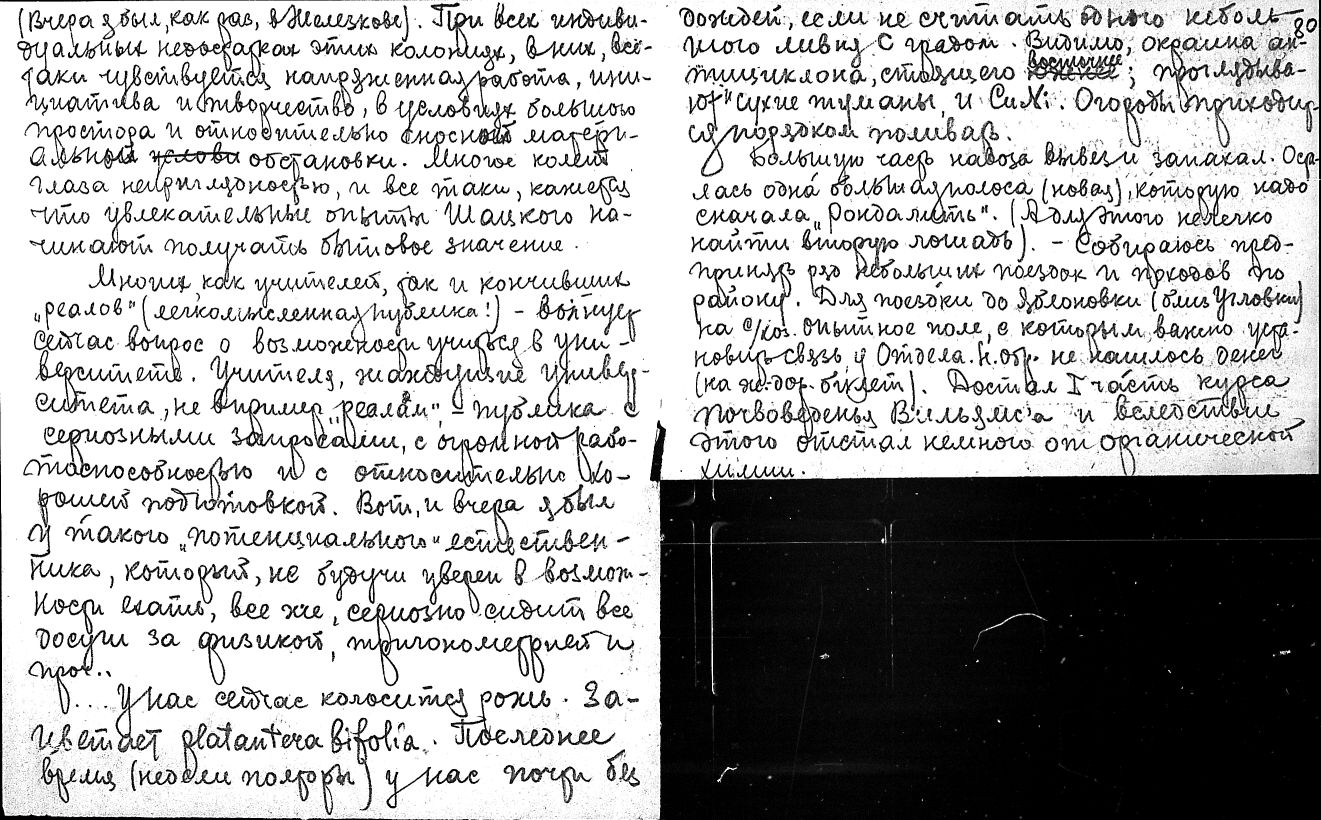 (Вчера я был, как раз, в Железкове). При всех индиви-
дуальных недостатках этих колониях, в них, все-
таки чувствуется напряженная работа, ини-
циатива и творчество, в условиях большого
простора и относительно сносной матери-
альной услови обстановки. Многое колет
глаза неприглядностью, и все таки, кажется
что увлекательные опыты Шацкого на-
чинают получать бытовое значение.
Многих, как учителей, так и кончивших
„реалов" (легкомысленная публика!) – волнует
сейчас вопрос о возможности учиться в уни-
верситете. Учителя, жаждущие универ-
ситета, не в пример „реалам", – публика с
сериозными запросами, с огромной рабо-
тоспособностью и с относительно хо-
рошей подготовкой. Вот, и вчера я был
у такого „потенциального" естествен-
ника, который, не будучи уверен в возмож-
ности ехать, все же, сериозно сидит все
досуги за физикой, тригонометрией и
проч..
.... У нас сейчас колосится рожь. За-
цветает platantera bifolia. Последнее
время (недели полторы) у нас почти без
80
дождей, если не считать одного неболь-
шого ливня с градом. Видимо, окраина ан-
тициклона, стоящего южнее восточнее; проглядыва-
ют „сухие туманы, и Cu Ni. Огороды приходит-
ся порядком поливать.
Большую часть навоза вывез и запахал. Оста-
лась одна большая полоса (новая), которую надо
сначала „рондалить". (А для этого нелегко
найти вторую лошадь). – Собираюсь пред-
принять ряд небольших поездок и походов по
району. Для поездки до Яблоновки (близ Угловки)
на с/хоз. опытное поле, с которым важно уста-
новить связь, у Отдела Н. обр. не нашлось денег
(на ж.-дор. билет). Достал I часть курса
почвоведенья Вильямса и вследствии
этого отстал немного от органической
химии.